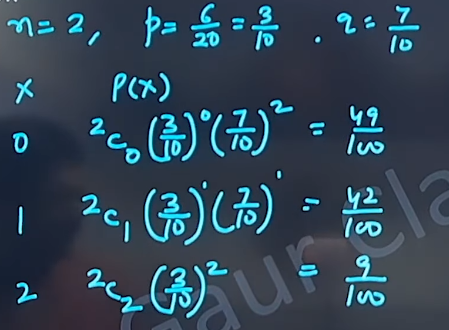 n=2, p=6/20=3/10 . q=7/10
X P(X)
0 ²C₀(3/10)⁰(7/10)² = 49/100
1 ²C₁(3/10)¹(7/10)¹ = 42/100
2 ²C₂(3/10)² = 9/100
Gaur Cla